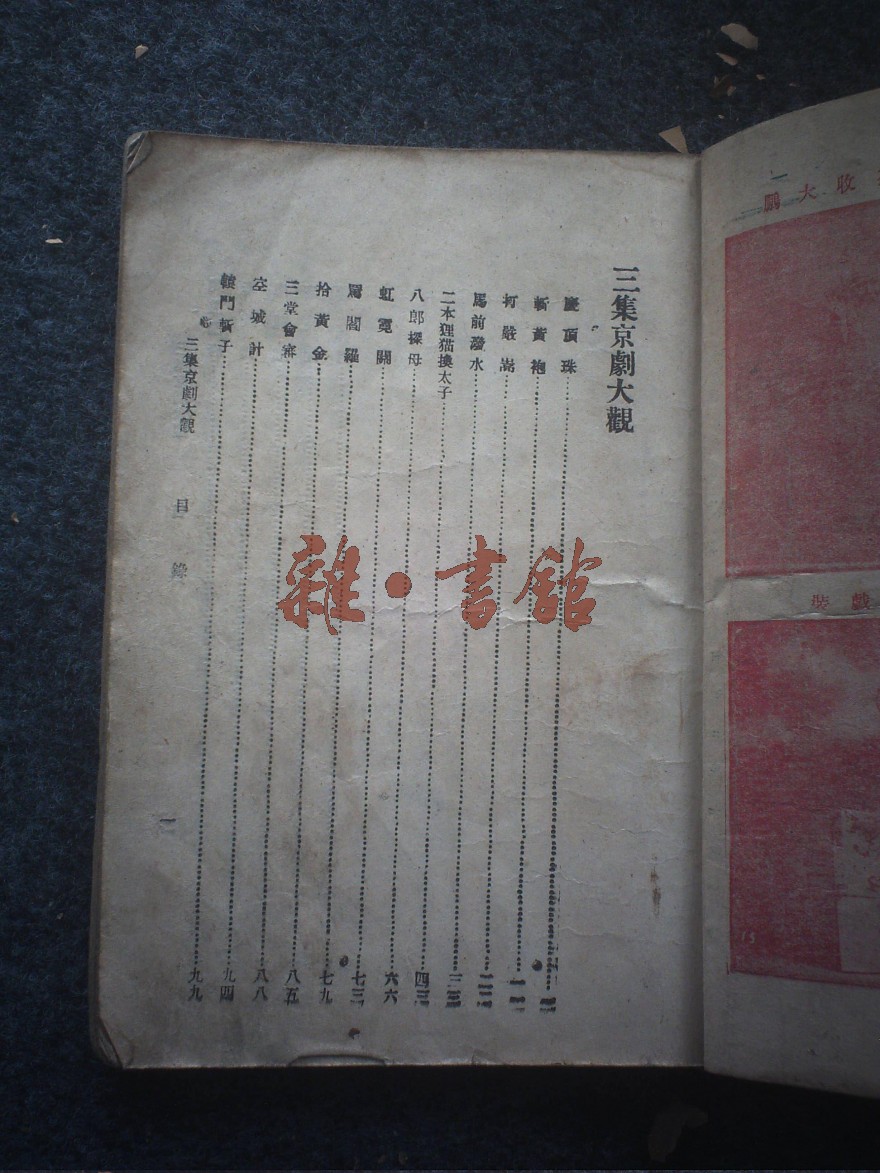 三集京劇大觀
慶頂珠
斬黃袍
打嚴嵩
馬前潑水
二本狸猫換太子……四三
八郎探母……六六
虹霓關……七三
罵閻羅……七九
拾黃金……八五
三堂會審……八八
空城計……九四
轅門斬子……九九
三集京劇大觀 目錄 一
雜·書館
收大
戲裝